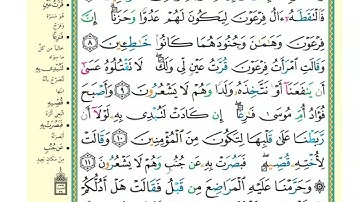 فَالْتَقَطَهُۥٓ ءَالُ فِرْعَوْنَ لِيَكُونَ لَهُمْ عَدُوًّا وَحَزَنًا ۗ إِنَّ
فِرْعَوْنَ وَهَٰمَٰنَ وَجُنُودَهُمَا كَانُوا۟ خَٰطِـِٔينَ ٨
وَقَالَتِ ٱمْرَأَتُ فِرْعَوْنَ قُرَّتُ عَيْنٍ لِّى وَلَكَ ۖ لَا تَقْتُلُوهُ عَسَىٰٓ
أَن يَنفَعَنَآ أَوْ نَتَّخِذَهُۥ وَلَدًا وَهُمْ لَا يَشْعُرُونَ ٩ وَأَصْبَحَ
فُؤَادُ أُمِّ مُوسَىٰ فَٰرِغًا ۖ إِن كَادَتْ لَتُبْدِى بِهِۦ لَوْلَآ أَن
رَّبَطْنَا عَلَىٰ قَلْبِهَا لِتَكُونَ مِنَ ٱلْمُؤْمِنِينَ ١٠ وَقَالَتْ
لِأُخْتِهِۦ قُصِّيهِ ۖ فَبَصُرَتْ بِهِۦ عَن جُنُبٍ وَهُمْ لَا يَشْعُرُونَ ١١
۞ وَحَرَّمْنَا عَلَيْهِ ٱلْمَرَاضِعَ مِن قَبْلُ فَقَالَتْ هَلْ أَدُلُّكُمْ